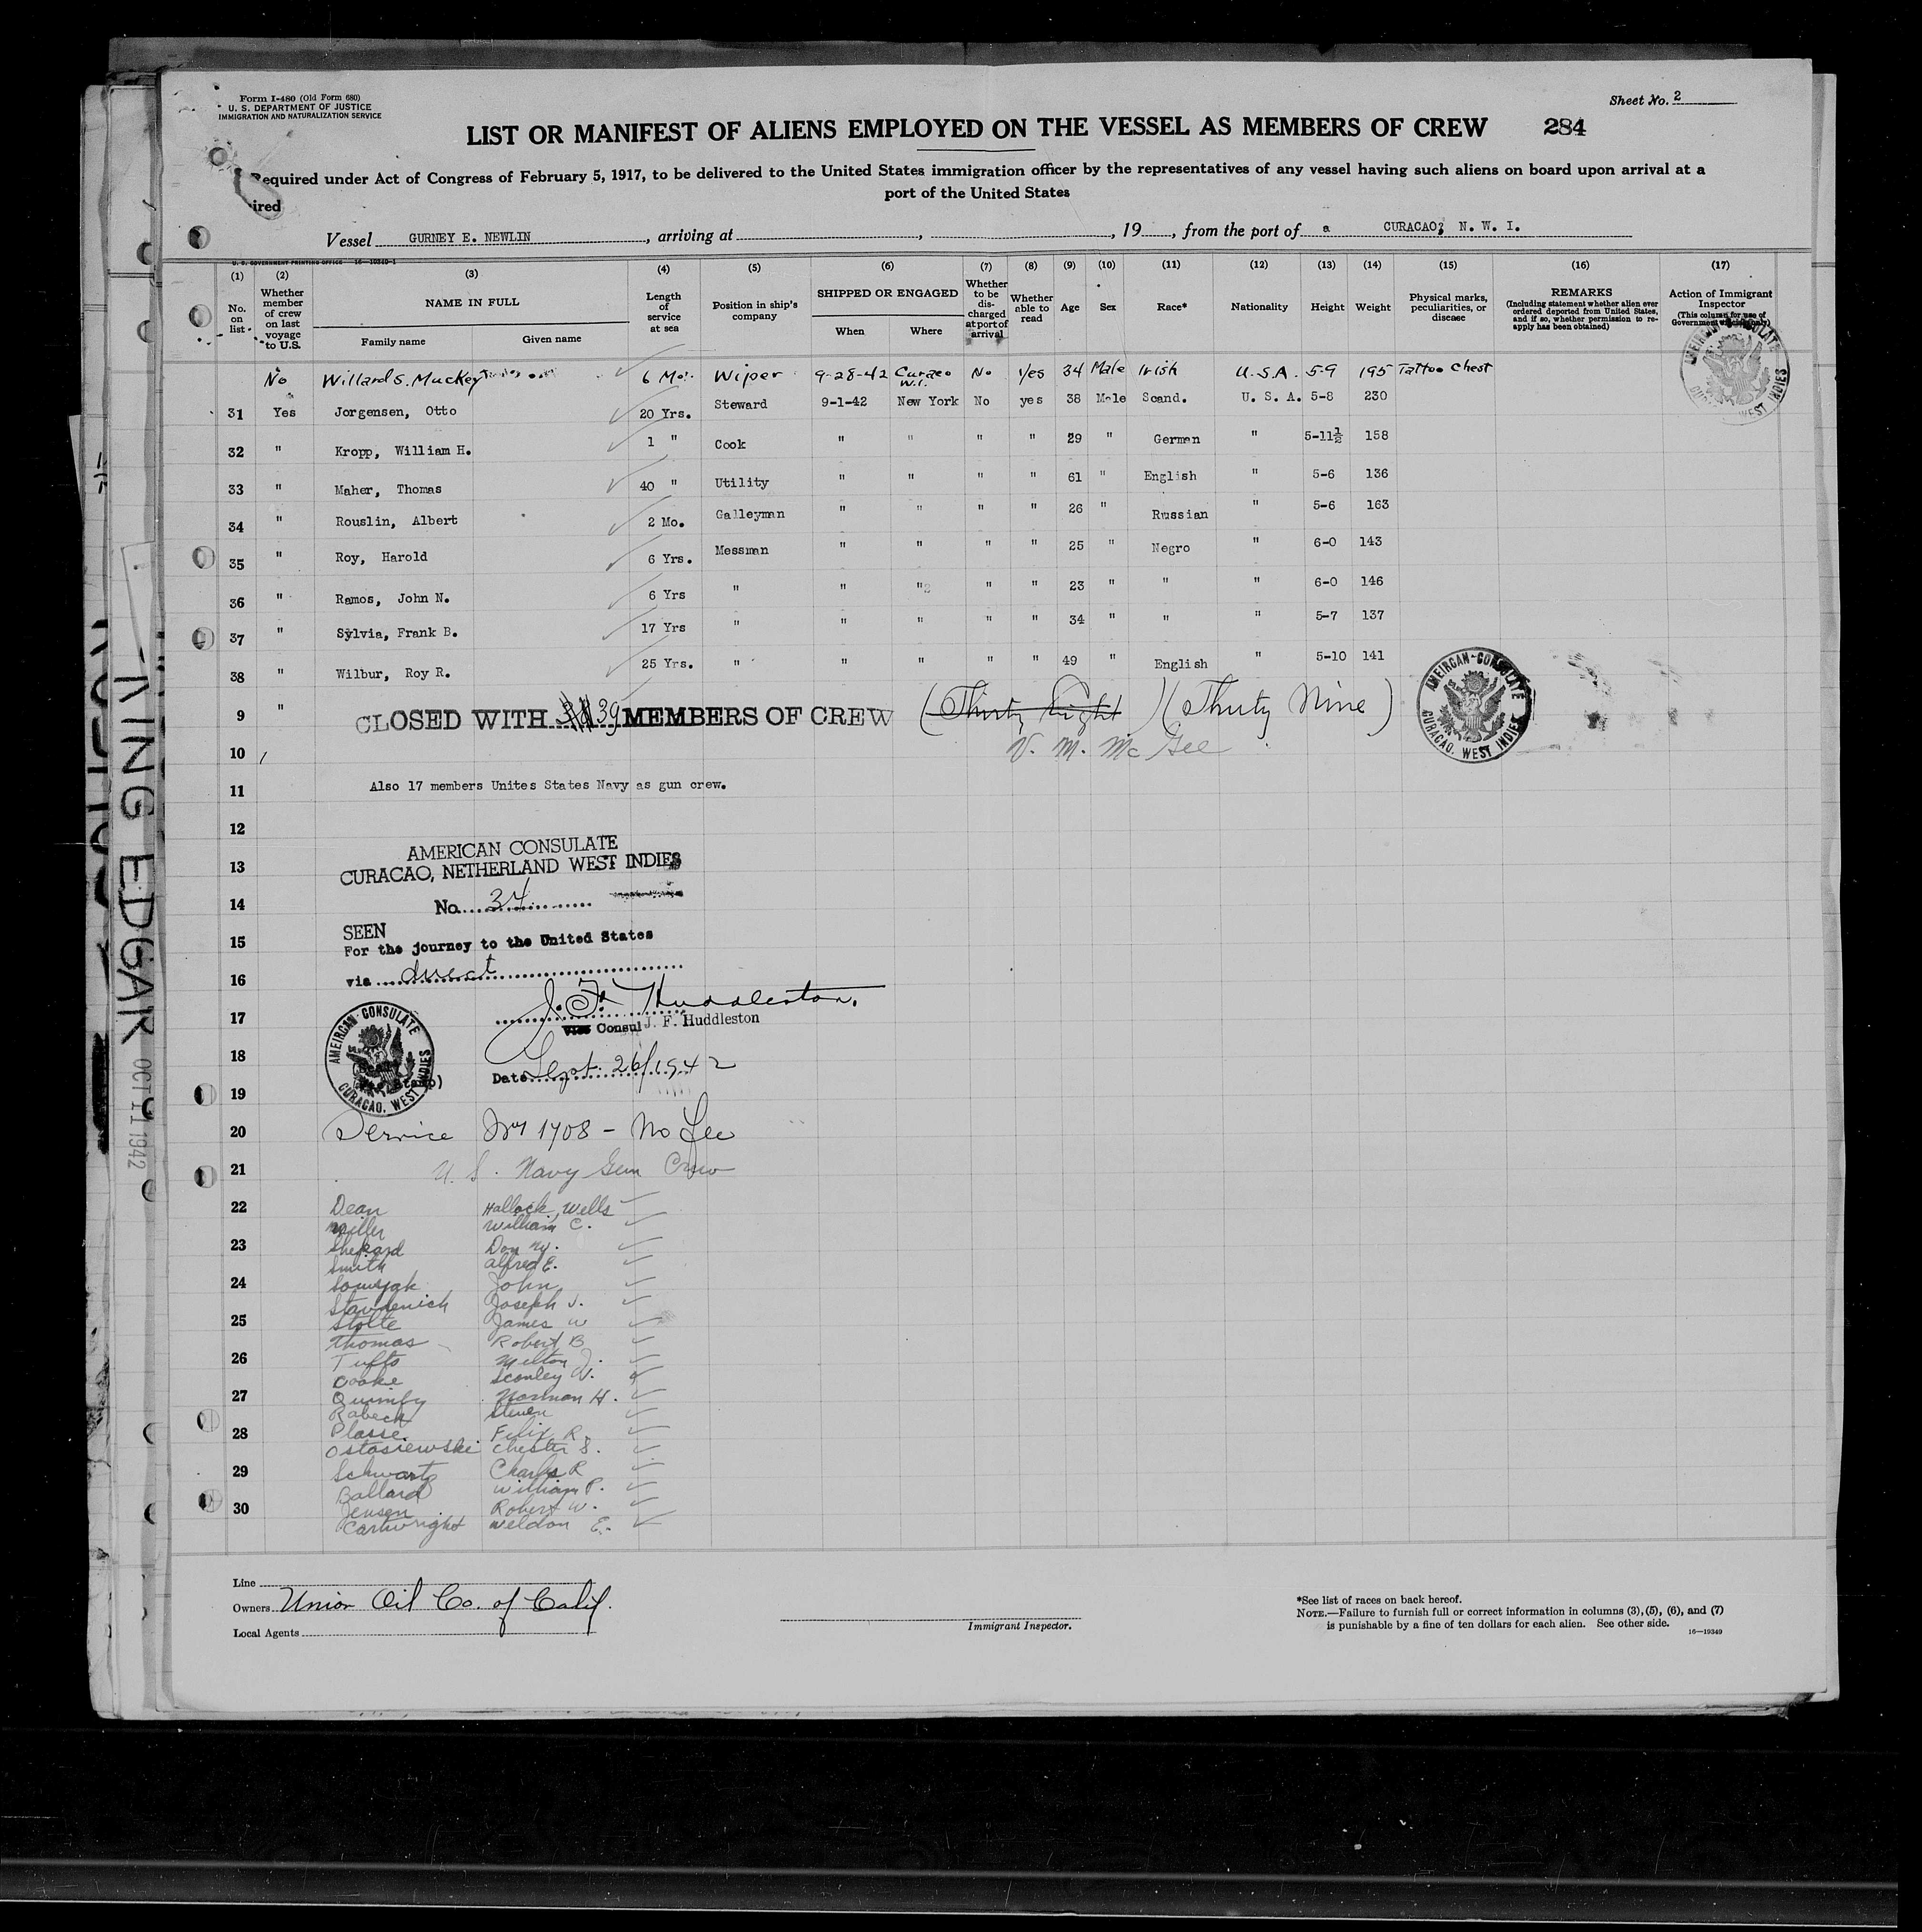 Form I-480 (Old Form 680)
U. S. DEPARTMENT OF JUSTICE
IMMIGRATION AND NATURALIZATION SERVICE
Sheet No. 2
LIST OR MANIFEST OF ALIENS EMPLOYED ON THE VESSEL AS MEMBERS OF CREW 284
Required under Act of Congress of February 5, 1917, to be delivered to the United States immigration officer by the representatives of any vessel having such aliens on board upon arrival at a
port of the United States
ired
Vessel GURNEY E. NEWLIN, arriving at , , 19 , from the port of a CURACAO, N. W. I.
U. S. GOVERNMENT PRINTING OFFICE 16—19349-1
(1) (2) (3) (4) (5) (6) (7) (8) (9) (10) (11) (12) (13) (14) (15) (16) (17)
No. on list Whether member of crew on last voyage to U.S. NAME IN FULL Family name Given name Length of service at sea Position in ship's company SHIPPED OR ENGAGED When Where Whether to be discharged at port of arrival Whether able to read Age Sex Race* Nationality Height Weight Physical marks, peculiarities, or disease REMARKS (Including statement whether alien ever ordered deported from United States, and if so, whether permission to reapply has been obtained) Action of Immigrant Inspector (This column for use of Government officials only)
No Willard S. Muckey 6 Mo. Wiper 9-28-42 Curaco W.I. No Yes 34 Male Irish U.S.A. 5-9 195 Tattoo Chest
31 Yes Jorgensen, Otto 20 Yrs. Steward 9-1-42 New York No yes 38 Male Scand. U. S. A. 5-8 230
32 " Kropp, William H. 1 " Cook " " " " 29 " German " 5-11½ 158
33 " Maher, Thomas 40 " Utility " " " " 61 " English " 5-6 136
34 " Rouslin, Albert 2 Mo. Galleyman " " " " 26 " Russian " 5-6 163
35 " Roy, Harold 6 Yrs. Messman " " " " 25 " Negro " 6-0 143
36 " Ramos, John N. 6 Yrs " " " " " 23 " " " 6-0 146
37 " Sylvia, Frank B. 17 Yrs " " " " " 34 " " " 5-7 137
38 " Wilbur, Roy R. 25 Yrs. " " " " " 49 " English " 5-10 141
9 " CLOSED WITH 38 39 MEMBERS OF CREW (Thirty Eight) (Thirty Nine)
10 V. M. McGee
11 Also 17 members Unites States Navy as gun crew.
12
AMERICAN CONSULATE
13 CURACAO, NETHERLAND WEST INDIES
14 No. 34
SEEN
15 For the journey to the United States
16 via direct
J. F. Huddleston
17 Vice Consul J. F. Huddleston
18 Date Sept. 26/1942
AMEIRCAN CONSULATE
CURACAO, WEST INDIES
AMEIRCAN CONSULATE
CURACAO, WEST INDIES
AMEIRCAN CONSULATE
CURACAO, WEST INDIES
19
20 Service No 1708 - No Fee
21 U. S. Navy Gun Crew
22 Dean Hallock Wells
Miller William C.
23 Shepard Don
Smith Alfred E.
24 John
Joseph J.
25 Stolte James W
Thomas Robert B
26 Tufts Milton J.
Cooke Stanley W.
27 Quimby Norman H.
Rabeck Steven
28 Plasse Felix R.
Ostasiewski Chester S.
29 Schwartz Charles R
Ballard William P.
30 Jensen Robert W.
Cartwright Weldon E.
Line
Owners Union Oil Co. of Calif.
Local Agents
Immigrant Inspector.
*See list of races on back hereof.
NOTE.—Failure to furnish full or correct information in columns (3), (5), (6), and (7)
is punishable by a fine of ten dollars for each alien. See other side.
16—19349
KING EDGAR
OCT 11 1942